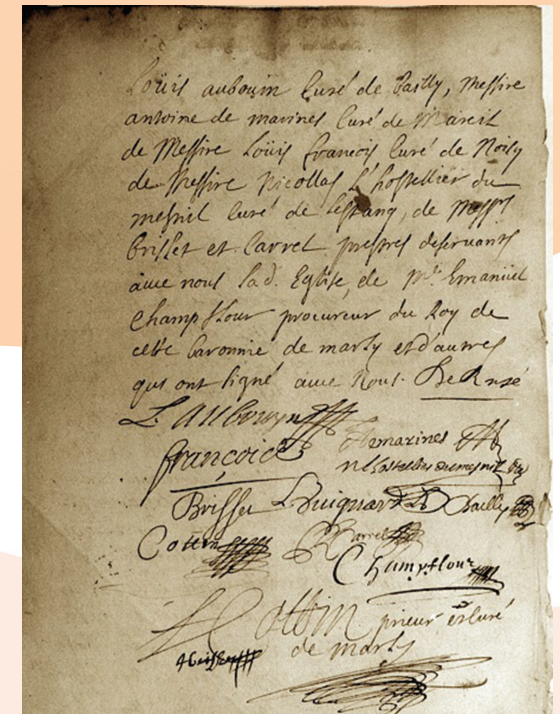 Loüis aubouin Curé de bailly, Messire
antoine de marines Curé de Mareil
de Messire Loüis francois Curé de Noisy
de Messire Nicollas L'hostellier du
mesnil Curé de Lestang, de Mess.rs
brisset et Carrel prestres deservants
auec nous lad. Eglise, de M.e Emanüel
Champflour procureur du Roy de
cette baronnie de marly et d'autres
qui ont signé auec Nous. De Ruzé
L. Aubouyn
françois Demarines
n Lhostellier dumesnil
Brisset L. Huignard Chailly
Cottin Carrel
Champflour
Cottin prieur et curé
de marly